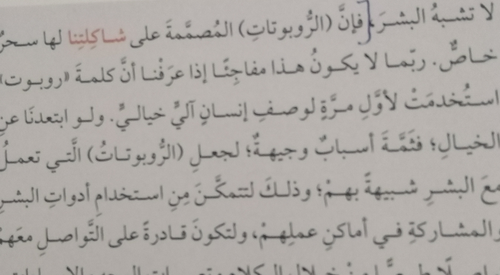 لا تشبهُ البشرَ، فإنَّ (الرُّوبوتاتِ) المُصمَّمةَ على شاكِلتِنا لها سحرٌ
خاصٌّ. ربّما لا يكونُ هذا مفاجِئًا إذا عرَفْنا أنَّ كلمةَ «روبوت»
استُخدمَتْ لأوَّلِ مرَّةٍ لوصفِ إنسانٍ آليٍّ خياليٍّ. ولو ابتعدنَا عنِ
الخيالِ؛ فثمَّةَ أسبابٌ وجيهةٌ؛ لجعلِ (الرُّوبوتاتُ) الَّتي تعملُ
معَ البشرِ شبيهةً بهمْ؛ وذلكَ لتتمكَّنَ مِنِ استخدامِ أدواتِ البشرِ
والمشاركةِ في أماكنِ عملِهمْ، ولتكونَ قادرةً على التَّواصلِ معَهمْ